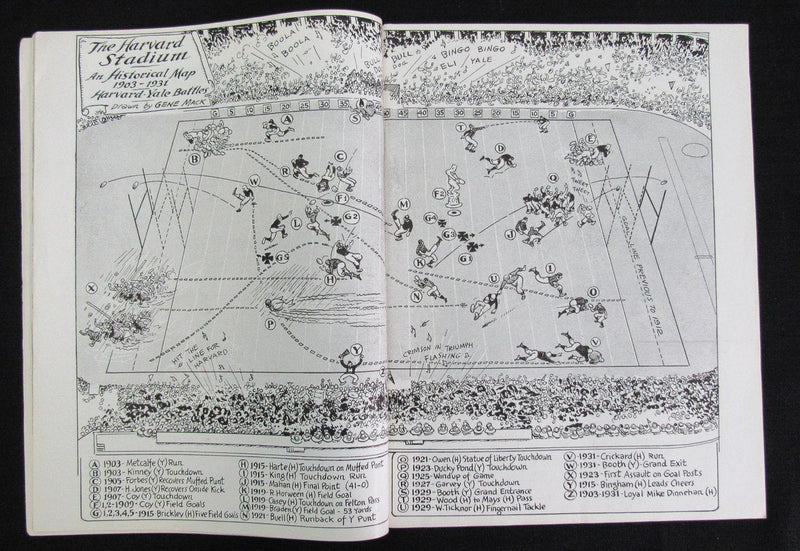 The Harvard
Stadium
An Historical Map
1903-1931
Harvard-Yale Battles
Drawn by GENE MACK
BOOLA
BOOLA
BULL
BULL
DOG
BINGO BINGO
ELI YALE
G 5 10 15 20 25 30 35
45 40 35 30 25 20 15 10 5 G
A
S
B
R
C
W
F1
L
G2
G5
H
X
P
Y
T
D
E
F2
Q
TWEET
TWEET
M
G4
G3
J
K
G1
N
U
I
O
V
GOAL LINE PREVIOUS TO 1912
HIT THE
LINE FOR
HARVARD
CRIMSON IN TRIUMPH
FLASHING
Z
A 1903-Metcalfe (Y) Run
B 1903-Kinney (Y) Touchdown
C 1905-Forbes (Y) Recovers Muffed Punt
D 1907-H. Jones (Y) Recovers Onside Kick
E 1907-Coy (Y) Touchdown
F 1,2-1909-Coy (Y) Field Goals
G 1,2,3,4,5-1915 Brickley (H) Five Field Goals
H 1915-Harte (H) Touchdown on Muffed Punt
I 1915-King (H) Touchdown Run
J 1915-Mahan (H) Final Point (41-0)
K 1919-R. Horween (H) Field Goal
L 1919-Casey (H) Touchdown on Felton Pass
M 1919-Braden (Y) Field Goal-53 Yards
N 1921-Buell (H) Runback of Y Punt
O 1921-Owen (H) Statue of Liberty Touchdown
P 1923-Ducky Pond (Y) Touchdown
Q 1925-Windup of Game
R 1927-Garvey (Y) Touchdown
S 1929-Booth (Y) Grand Entrance
T 1929-Wood (H) to Mays (H) Pass
U 1929-W. Ticknor (H) Fingernail Tackle
V 1931-Crickard (H) Run
W 1931-Booth (Y)-Grand Exit
X 1923 First Assault on Goal Posts
Y 1915-Bingham (H) Leads Cheers
Z 1903-1931-Loyal Mike Dinnehan (H)